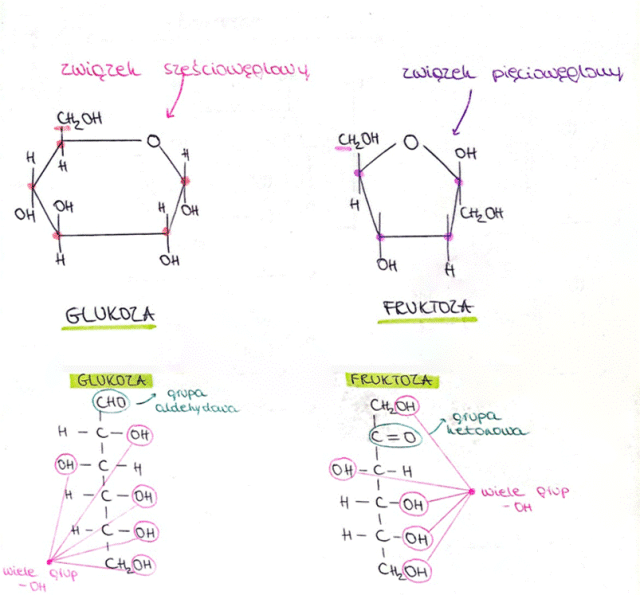 związek sześciowęglowy
związek pięciowęglowy
CH₂OH
O
H
H
H
OH
OH
H
OH
H
OH
CH₂OH
O
OH
H
CH₂OH
OH
H
GLUKOZA
FRUKTOZA
GLUKOZA
CHO
grupa
aldehydowa
H - C - OH
OH - C - H
H - C - OH
H - C - OH
CH₂OH
wiele grup
- OH
FRUKTOZA
CH₂OH
C = O
grupa
ketonowa
OH - C - H
H - C - OH
H - C - OH
CH₂OH
wiele grup
- OH